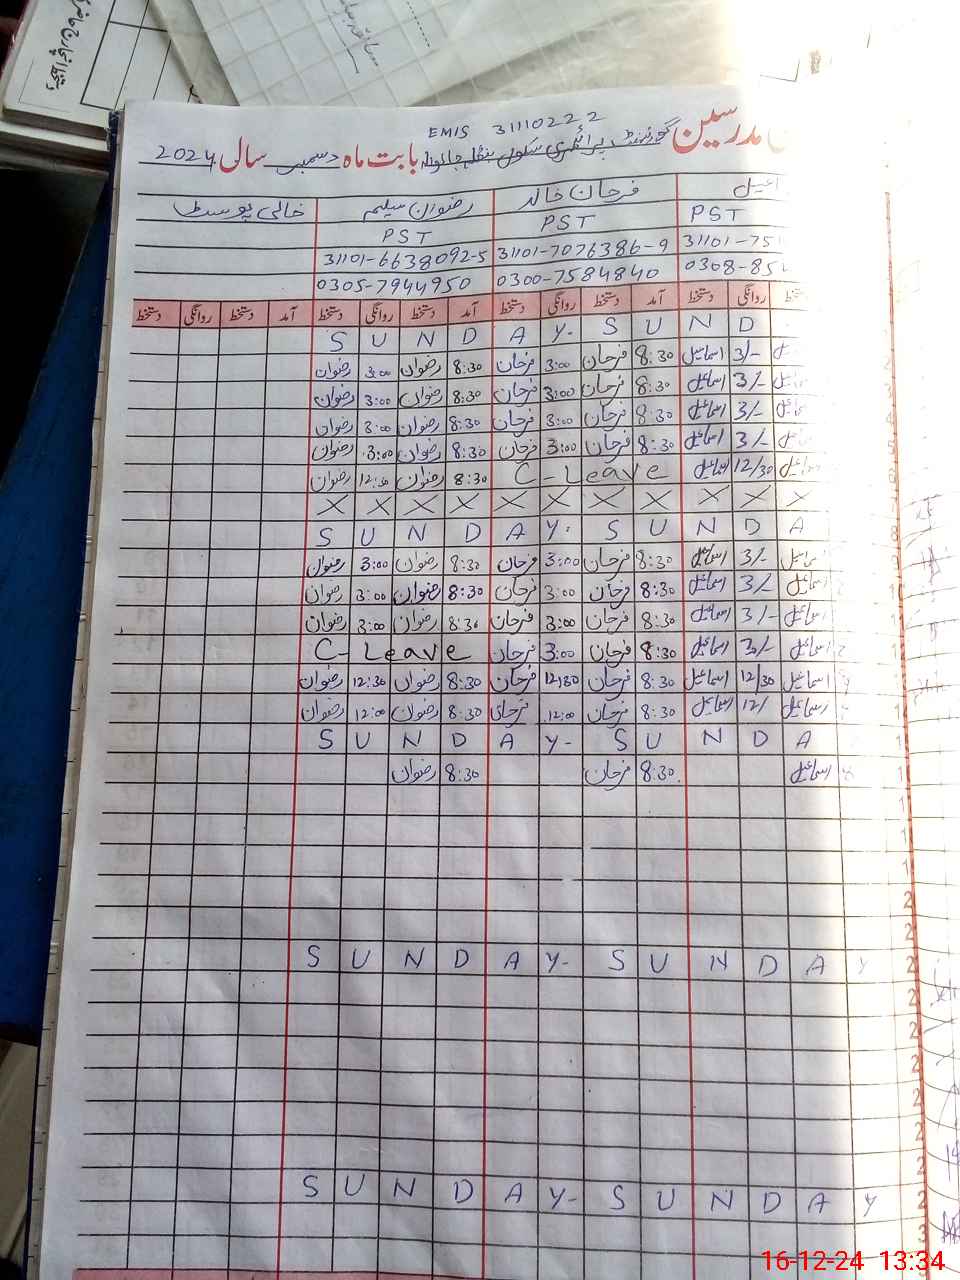 EMIS 31110222
مدرسین گورنمنٹ پرائمری سکول بابت ماہ دسمبر سال 2024
فرحان خالد رضوان سلیم خالی پوسٹ
PST PST PST
31101-75 31101-7076386-9 31101-6638092-5
0308-85 0300-7584840 0305-7944950
دستخط روانگی دستخط آمد دستخط روانگی دستخط آمد دستخط روانگی دستخط آمد دستخط روانگی دستخط
S U N D A Y- S U N D
اسماعیل 3/- اسماعیل 8:30 فرحان 3:00 فرحان 8:30 رضوان 3:00 رضوان
اسماعیل 3/- اسماعیل 8:30 فرحان 3:00 فرحان 8:30 رضوان 3:00 رضوان
اسماعیل 3/- اسماعیل 8:30 فرحان 3:00 فرحان 8:30 رضوان 3:00 رضوان
اسماعیل 3/- اسماعیل 8:30 فرحان 3:00 فرحان 8:30 رضوان 3:00 رضوان
اسماعیل 12/30 اسماعیل C-Leave 8:30 رضوان 12:30 رضوان
X X X X X X X X X X
S U N D A Y- S U N D A
اسماعیل 3/- اسماعیل 8:30 فرحان 3:00 فرحان 8:30 رضوان 3:00 رضوان
اسماعیل 3/- اسماعیل 8:30 فرحان 3:00 فرحان 8:30 رضوان 3:00 رضوان
اسماعیل 3/- اسماعیل 8:30 فرحان 3:00 فرحان 8:30 رضوان 3:00 رضوان
اسماعیل 3/- اسماعیل 8:30 فرحان 3:00 فرحان C-Leave
اسماعیل 12/30 اسماعیل 8:30 فرحان 12:30 فرحان 8:30 رضوان 12:30 رضوان
اسماعیل 12/ اسماعیل 8:30 فرحان 12:00 فرحان 8:30 رضوان 12:00 رضوان
S U N D A Y- S U N D A
اسماعیل 8:30 فرحان 8:30 رضوان
S U N D A Y- S U N D A Y
S U N D A Y- S U N D A Y
16-12-24 13:34